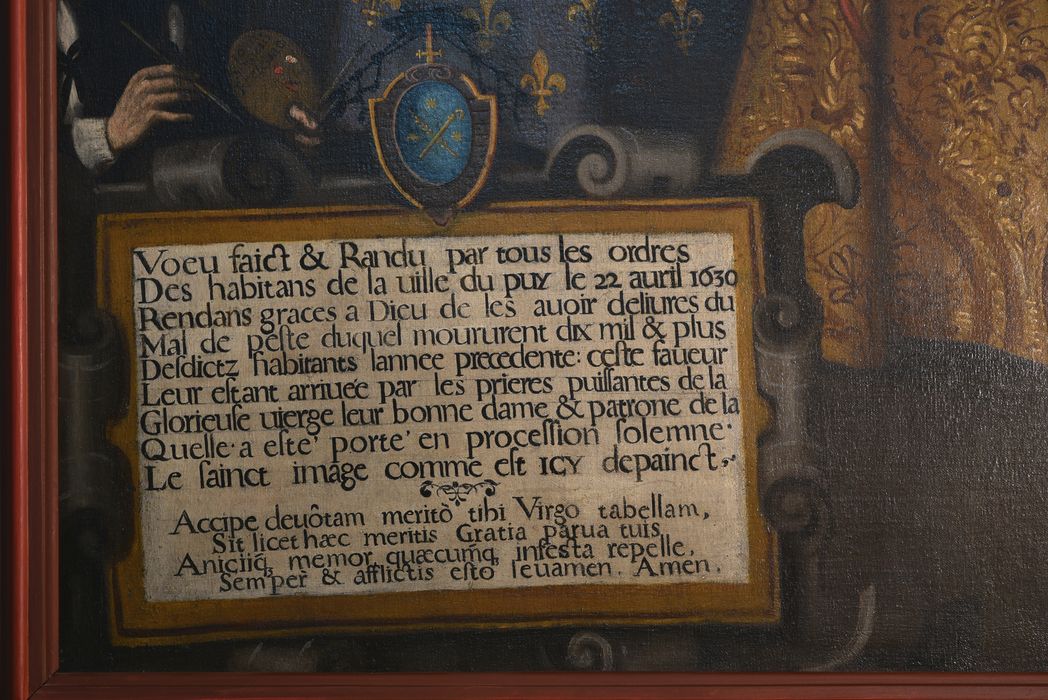 Voeu faict & Randu par tous les ordres
Des habitans de la uille du puy le 22 auril 1630
Rendans graces a Dieu de les auoir deliures du
Mal de peſte duquel moururent dix mil & plus
Deſdictz habitants lannee precedente: ceſte faueur
Leur eſtant arriuée par les prieres puiſſantes de la
Glorieuſe uierge leur bonne dame & patrone de la
Quelle·a eſte' porte' en proceſſion ſolemne·
Le ſainct image comme eſt ICY depainct.
Accipe deuôtam meritò tibi Virgo tabellam,
Sit licet hæc meritis Gratia parua tuis,
Aniciiq, memor quæcumq, infeſta repelle,
Semper & afflictis eſto leuamen. Amen.